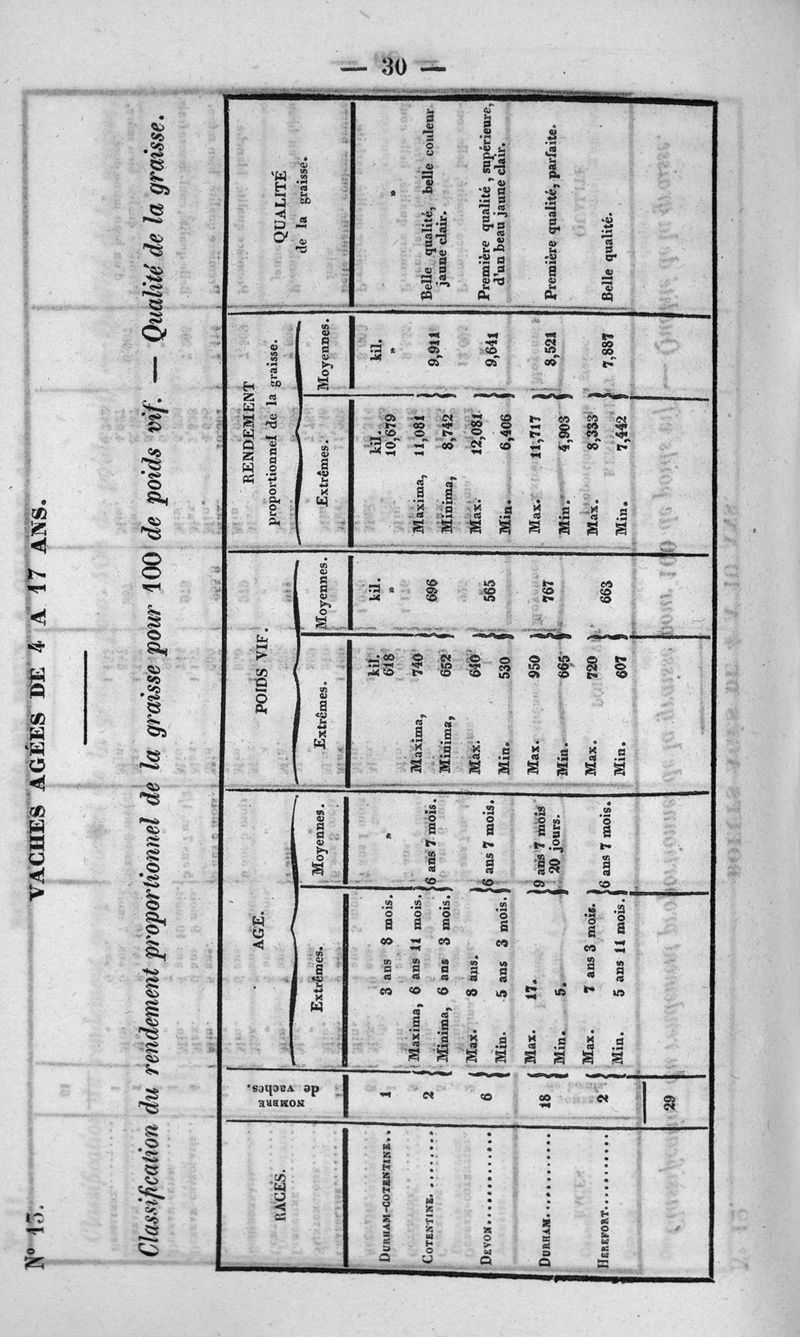 — 30 —
N° 15. VACHES AGÉES DE 4 A 17 ANS.
Classification du rendement proportionnel de la graisse pour 100 de poids vif. — Qualité de la graisse.
RACES. NOMBRE de vaches. AGE. POIDS VIF. RENDEMENT proportionnel de la graisse. QUALITÉ de la graisse.
Extrêmes. Moyennes. Extrêmes. Moyennes. Extrêmes. Moyennes.
kil. kil. kil. kil.
DURHAM-COTENTINE.. 1 3 ans 8 mois. » 618 » 10,679 » »
COTENTINE........ 2 Maxima, 6 ans 11 mois. 6 ans 7 mois. Maxima, 740 696 Maxima, 11,081 9,911 Belle qualité, belle couleur
Minima, 6 ans 3 mois. Minima, 652 Minima, 8,742 jaune clair.
DEVON............ 6 Max. 8 ans. 6 ans 7 mois. Max. 640 565 Max. 12,081 9,641 Première qualité, supérieure,
Min. 5 ans 3 mois. Min. 530 Min. 6,406 d'un beau jaune clair.
DURHAM............ 18 Max. 17. 9 ans 7 mois Max. 950 767 Max. 11,717 8,521 Première qualité, parfaite.
Min. 5. 20 jours. Min. 665 Min. 4,903
HEREFORT........... 2 Max. 7 ans 3 mois. 6 ans 7 mois. Max. 720 663 Max. 8,333 7,887 Belle qualité.
Min. 5 ans 11 mois. Min. 607 Min. 7,442
29